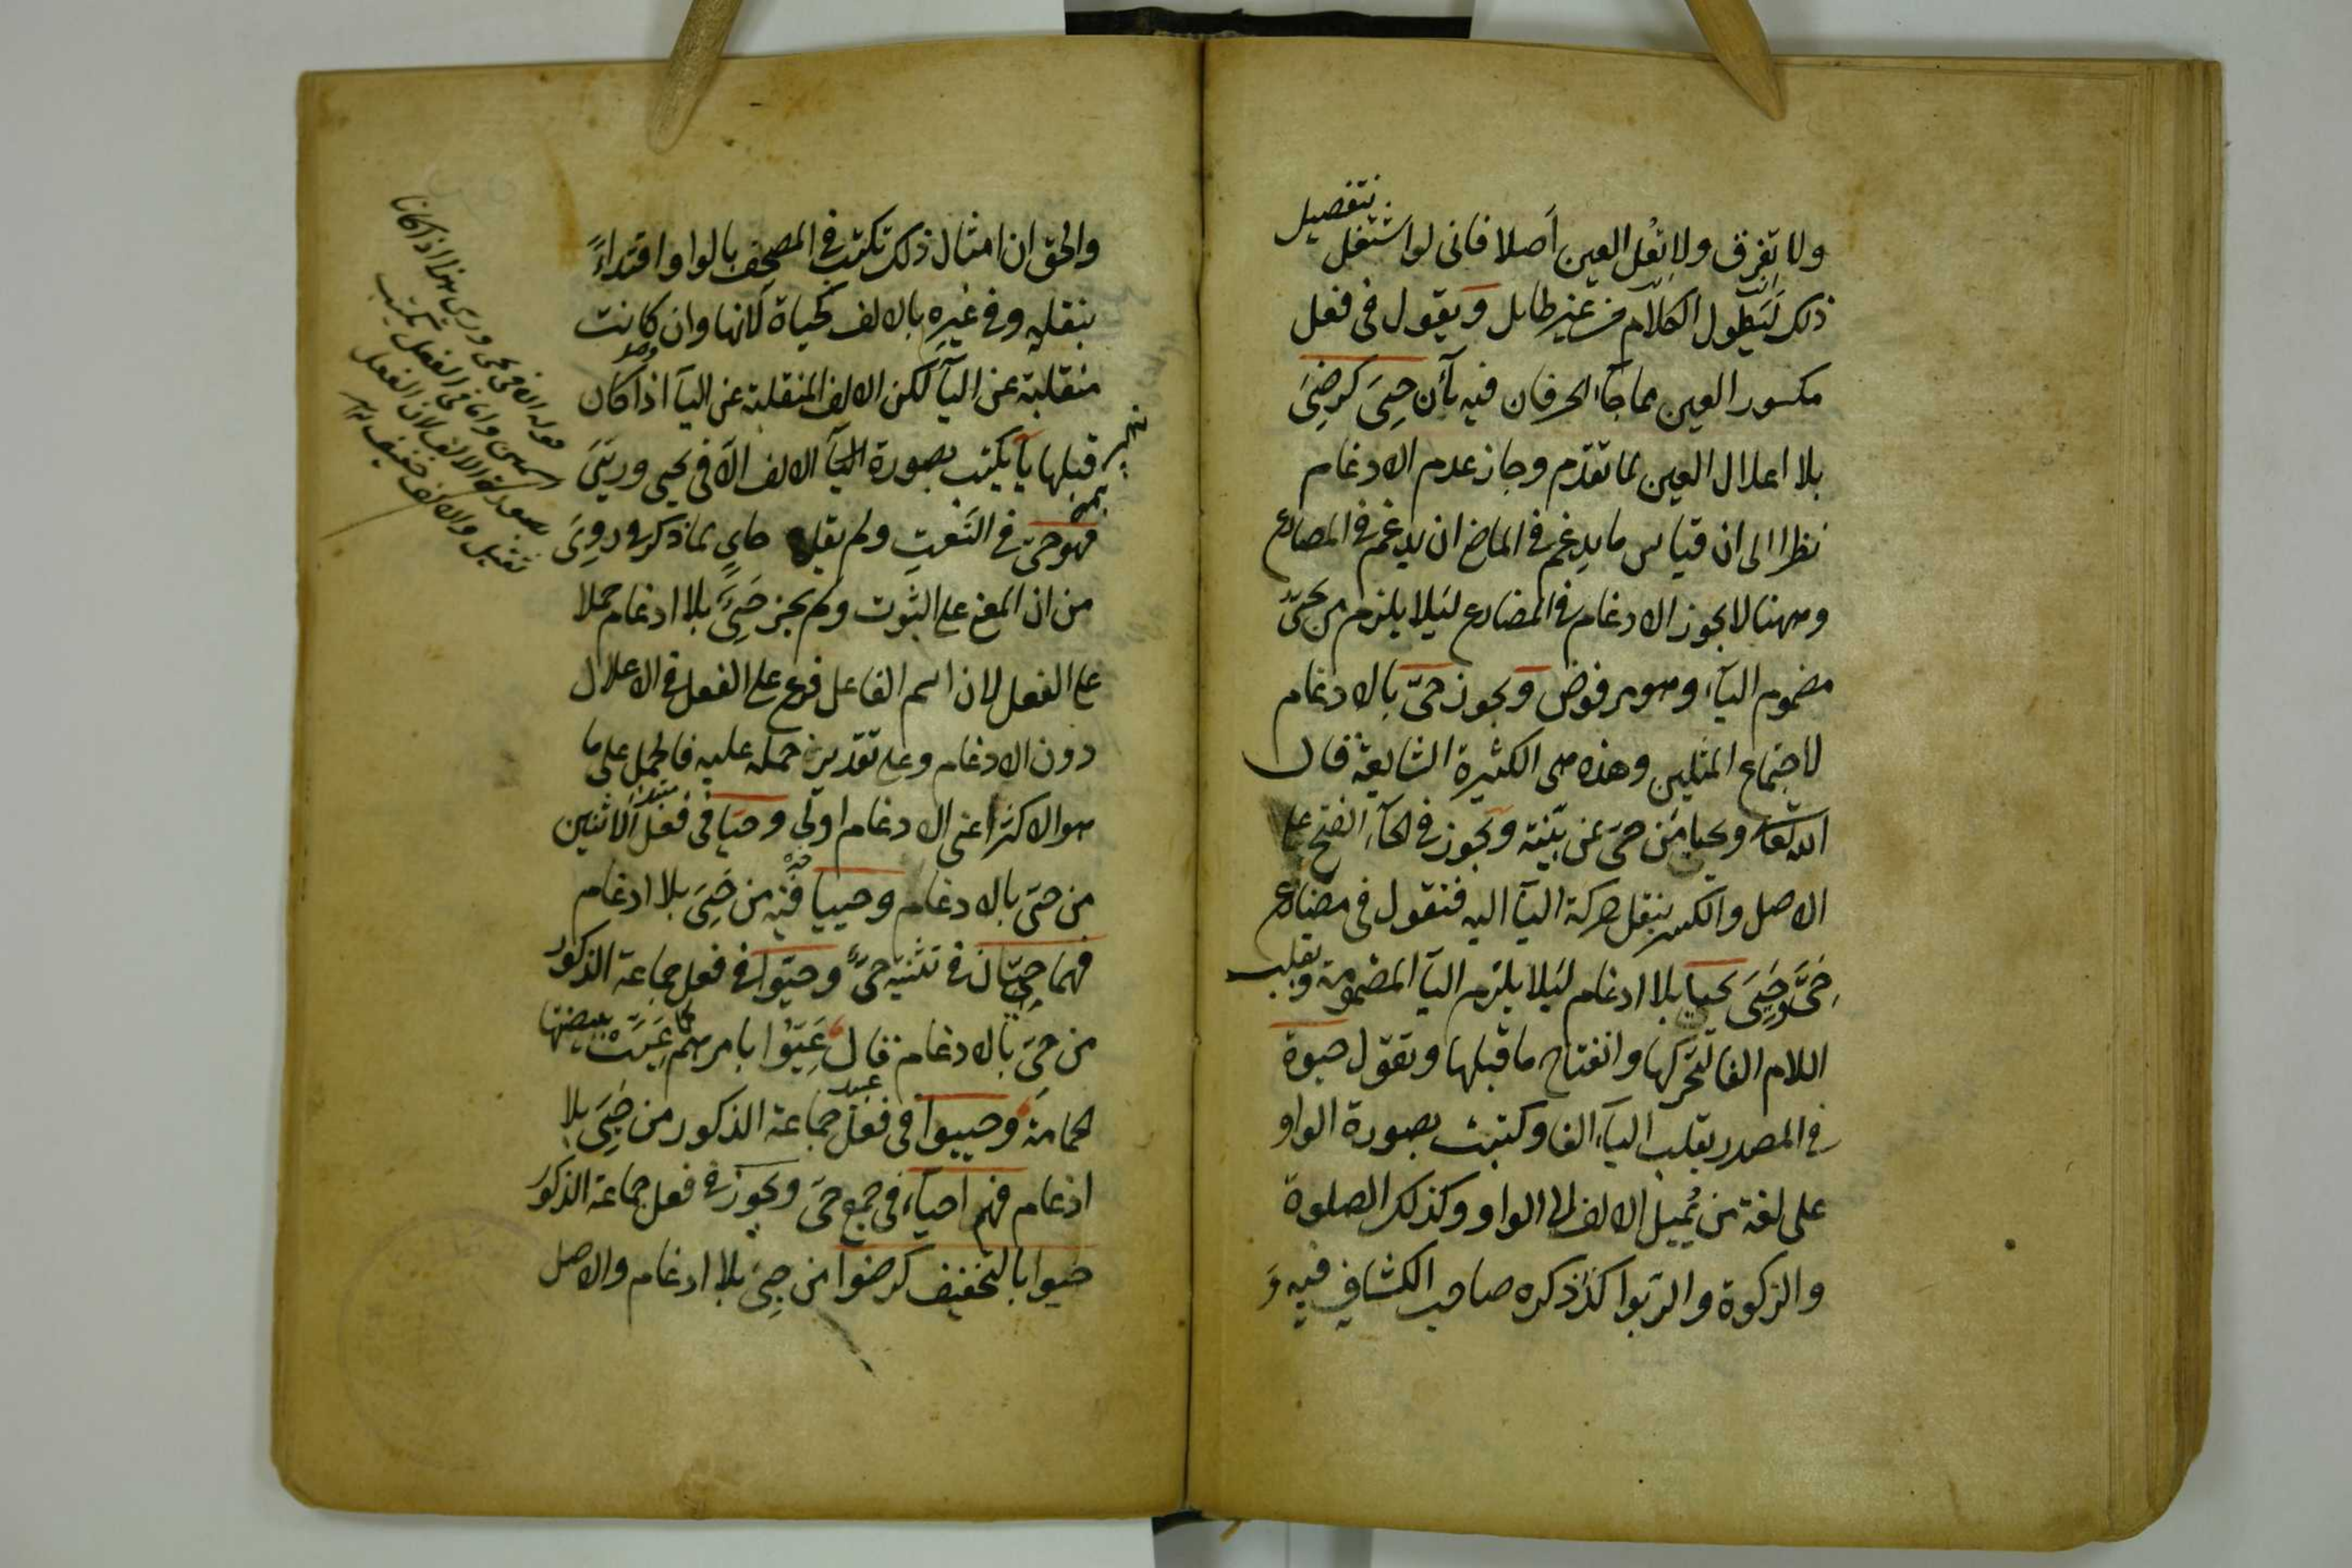 ولا تفرق ولا تعل العين أصلا فانى لو اشتغل بتفصيل
ذلك ليطول الكلام من غير طايل وتقول فى فعل
مكسور العين مما جاء الحرفان فيه يآئن حيى كرضى
بلا اعلال العين لما تقدم وجاز عدم الادغام
نظرا الى ان قياس ما يدغم فى الماضى ان يدغم فى المضارع
وههنا لا يجوز الادغام فى المضارع ليلا يلزم من يحىّ
مضموم اليآء وهو مرفوض ويجوز حىّ بالادغام
لاجتماع المثلين وهذه هى الكثيرة الشايعة قال
الله تعالى ويحيا من حىّ عن بيّنة ويجوز فى الحآء الفتح على
الاصل والكسر بنقل حركة اليآ اليه فتقول فى مضارع
حىّ وحيى يحيا بلا ادغام ليلا يلزم اليآ المضمومة وتقلب
اللام الفا لتحركها وانفتاح ما قبلها وتقول حيوة
فى المصدر بقلب اليآء الفا وكتبت بصورة الواو
على لغة من يُميل الالف الى الواو وكذلك الصلوة
والزكوة والربوا كذا ذكره صاحب الكشاف فيه و
والحق ان امثال ذلك تكتب فى المصحف بالواو اقتداءً
بنقله وفى غيره بالالف كحياة لانها وان كانت
منقلبة عن اليآء لكن الالف المنقلبة عن اليآ اذا كان
قبلها يآ يكتب بصورة الالف الّا فى يحيى وريّى
فهو حىّ فى النعت ولم يقل حاي لما ذكر فى روى
من ان المعنى على الثبوت ولم يجز حيىٌ بلا ادغام حملا
على الفعل لان اسم الفاعل فرع على الفعل فى الاعلال
دون الادغام وعلى تقدير حمله عليه فالحمل على ما
هو الاكثر اعنى الادغام اولى وحيّا فى فعل الاثنين
من حىّ بالادغام وحييا فيه من حيى بلا ادغام
فهما حيّان فى تثنية حىّ وحيّوا فى فعل جماعة الذكور
من حىّ بالادغام قال عَيّوا بامرهم كما عيّت ببيضتها
الحمامة وحييوا فى فعل جماعة الذكور من حيى بلا
ادغام فهم احياء فى جمع حىّ ويجوز فى فعل جماعة الذكور
حيوا بالتخفيف كرضوا من حيى بلا ادغام والاصل
قوله الا فى يحيى وريى هذا اذا كانا
اسمين واما فى الفعل يكتب
بصورة الالف لان الفعل
ثقيل والالف خفيف